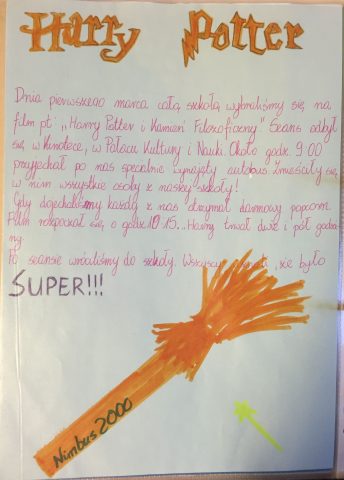 Harry Potter
Dnia pierwszego marca całą szkołą wybraliśmy się na
film pt: „Harry Potter i Kamień Filozoficzny" Seans odbył
się w Kinotece, w Pałacu Kultury i Nauki. Około godz. 9:00
przyjechał po nas specjalnie wynajęty autobus. Zmieściły się
w nim wszystkie osoby z naszej szkoły!
Gdy dojechaliśmy każdy z nas otrzymał darmowy popcorn.
Film rozpoczął się o godz. 10:15.. Harry trwał dwie i pół godzi
ny
Po seansie wróciliśmy do szkoły. że było
SUPER!!!
Nimbus 2000